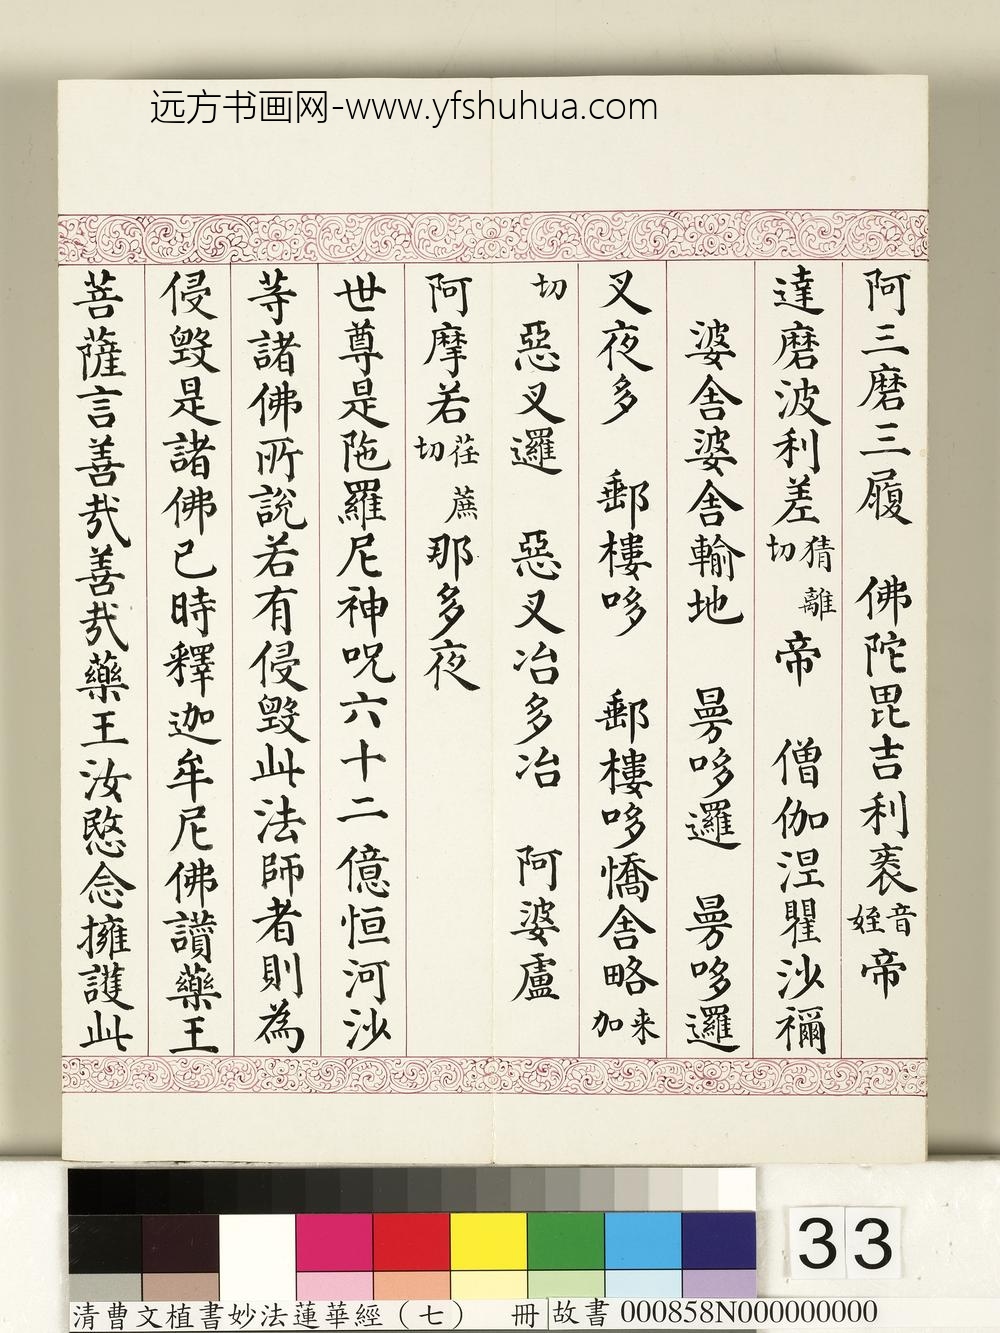 远方书画网-www.yfshuhua.com
阿三磨三履　佛陀毘吉利袠音姪帝
達磨波利差猜離切帝　僧伽涅瞿沙禰
婆舍婆舍輸地　曼哆邏　曼哆邏
叉夜多　郵樓哆　郵樓哆憍舍略来加
切惡叉邏　惡叉冶多冶　阿婆盧
阿摩若荏蔗切那多夜
世尊是陁羅尼神呪六十二億恒河沙
等諸佛所說若有侵毀此法師者則為
侵毀是諸佛已時釋迦牟尼佛讚藥王
菩薩言善哉善哉藥王汝愍念擁護此
33
清曹文植書妙法蓮華經（七）　冊
故書 000858N000000000